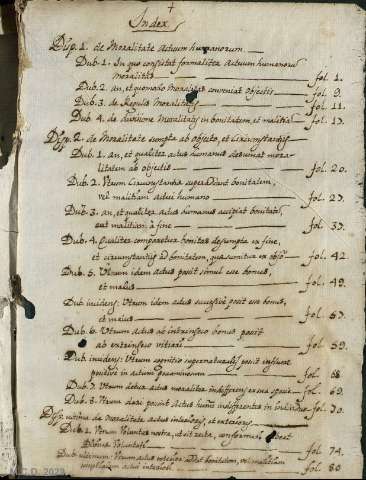 Index
Disp. 1. de Moralitate Actuum humanorum
Dub. 1. In quo consistat formalitèr Actuum humanorũ
moralitas fol. 1.
Dub. 2. an, et quomodo moralitas conveniat objectis fol. 9.
Dub. 3. de Regula Moralitatis fol. 11.
Dub. 4. de divisione Moralitatis in bonitatem, et malitiã fol. 13.
Disp. 2. de Moralitate sumpta ab objecto, et Circumstantijs
Dub. 1. an, et qualitèr actus humanus desumat mora-
litatem ab objecto fol. 20.
Dub. 2. Vtrum Circumstantiæ superaddant bonitatem,
vel malitiam actui humano fol. 27.
Dub. 3. an, et qualitèr actus humanus accipiat bonitatẽ,
aut malitiam à fine fol. 37.
Dub. 4. Qualitèr comparetur bonitas desumpta ex fine,
et circumstantijs ad bonitatem, quæ sumitur ex obio fol. 42
Dub. 5. Utrum idem actus possit simul esse bonus,
et malus fol. 49.
Dub. incidens: Utrum idem actus successivè possit esse bonus,
et malus fol. 57.
Dub. 6. Utrum actus ab intrinseco bonus possit
ab extrinseco vitiari fol. 59.
Dub. incidens: Utrum cognitio supernaturalis possit influere
positivè in actum fol. 68
Dub. 7. Utrum detur actus moralitèr indifferens ex sua specie fol. 69.
Dub. 8. Utrum dari possit Actus humũ indifferentes in individuo fol. 70.
Disp. ultima de Moralitate actus interioris, et exterioris
Dub. 1. Utrum Voluntas nostra, ut sit recta, conformari debeat
Divinæ Voluntati fol. 74.
Dub. ultimum. Utrum actus exterior addat bonitatem, vel malitiam
supra actus interioris fol. 80
M.C.D. 2023